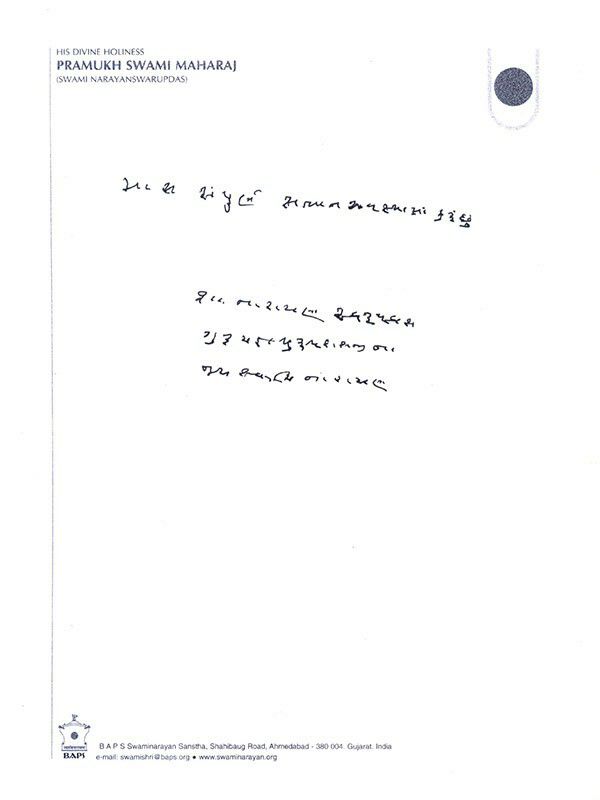 HIS DIVINE HOLINESS
PRAMUKH SWAMI MAHARAJ
(SWAMI NARAYANSWARUPDAS)
નારાયણ સ્વરૂપદાસ
ગુરુ યજ્ઞપુરુષદાસજી ના
જય સ્વામિ નારાયણ
BAPS
B A P S Swaminarayan Sanstha, Shahibaug Road, Ahmedabad - 380 004. Gujarat. India
e-mail: swamishri@baps.org ★ www.swaminarayan.org